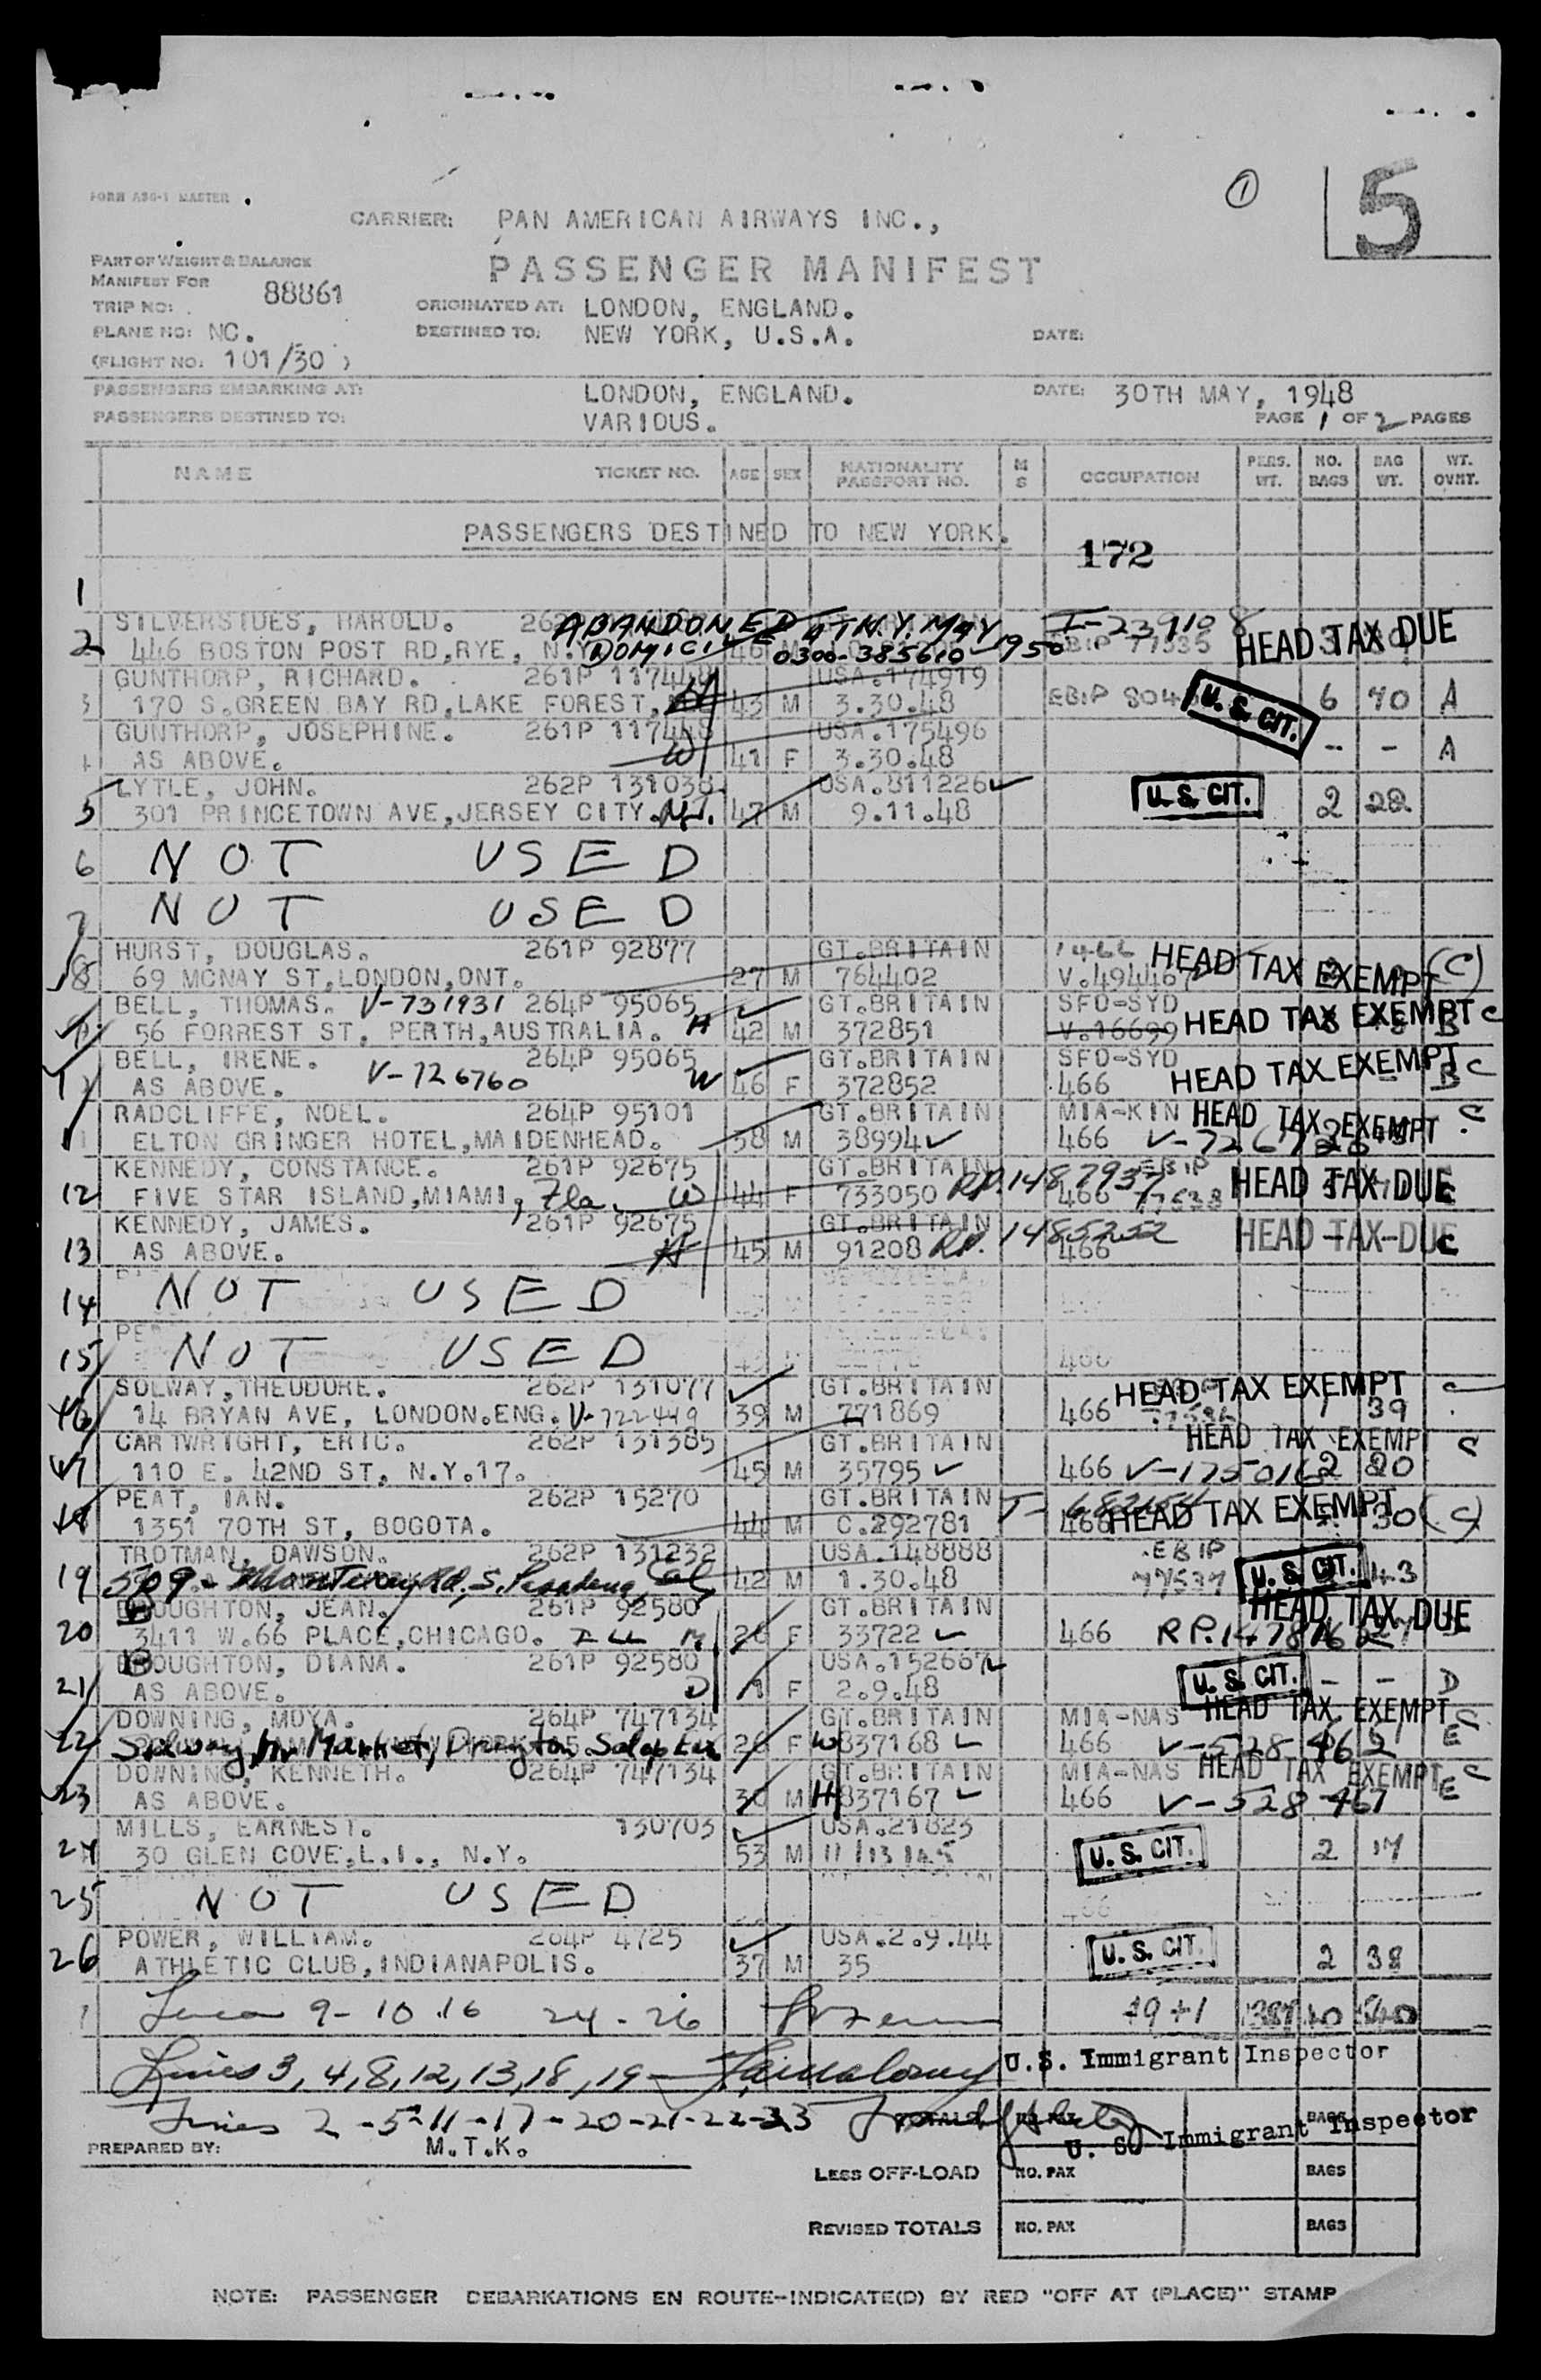 ① 5
FORM ASG-1 MASTER
CARRIER: PAN AMERICAN AIRWAYS INC.,
PART OF WEIGHT & BALANCE
PASSENGER MANIFEST
MANIFEST FOR
TRIP NO: 88861
ORIGINATED AT: LONDON, ENGLAND.
PLANE NO: NC. DESTINED TO: NEW YORK, U.S.A. DATE:
(FLIGHT NO: 101/30 )
PASSENGERS EMBARKING AT: LONDON, ENGLAND. DATE: 30TH MAY, 1948
PASSENGERS DESTINED TO: VARIOUS. PAGE 1 OF 2 PAGES
NAME TICKET NO. AGE SEX NATIONALITY PASSPORT NO. M S OCCUPATION PERS. WT. NO. BAGS BAG WT. WT. OVMT.
PASSENGERS DESTINED TO NEW YORK.
172
1
SILVERSIDES, HAROLD. ABANDONED AT N.Y. MAY
2 446 BOSTON POST RD,RYE, N.Y. DOMICILE 46 M 0300-385610 1950 EBIP 77535 HEAD TAX DUE
GUNTHORP, RICHARD. 261P 117448 USA.174919
3 170 S.GREEN BAY RD,LAKE FOREST, H 43 M 3.30.48 EBIP U.S. CIT. 6 70 A
GUNTHORP, JOSEPHINE. 261P 117448 USA.175496
4 AS ABOVE. W 41 F 3.30.48 -- - A
LYTLE, JOHN. 262P 131038 USA.811226
5 301 PRINCETOWN AVE,JERSEY CITY. N.J. 47 M 9.11.48 U.S. CIT. 2 22
6 NOT USED
7 NOT USED
HURST, DOUGLAS. 261P 92877 GT.BRITAIN 1466 HEAD TAX EXEMPT (C)
8 69 MCNAY ST,LONDON,ONT. 27 M 764402 V.494467
BELL, THOMAS. V-731931 264P 95065 GT.BRITAIN SFO-SYD
56 FORREST ST, PERTH,AUSTRALIA. H 42 M 372851 V.16699 HEAD TAX EXEMPT C
BELL, IRENE. 264P 95065 GT.BRITAIN SFO-SYD
AS ABOVE. V-726760 W 46 F 372852 466 HEAD TAX EXEMPT B C
RADCLIFFE, NOEL. 264P 95101 GT.BRITAIN MIA-KIN HEAD TAX EXEMPT C
11 ELTON GRINGER HOTEL,MAIDENHEAD. 38 M 38994 466
KENNEDY, CONSTANCE. 261P 92675 GT.BRITAIN EBIP
12 FIVE STAR ISLAND,MIAMI, Fla. W 44 F 733050 RP.1487937 466 HEAD TAX DUE
KENNEDY, JAMES. 261P 92675 GT.BRITAIN
13 AS ABOVE. H 45 M 91208 RP. 1485252 466 HEAD TAX DUE
14 NOT USED
15 NOT USED 466
SOLWAY,THEODORE. 262P 131077 GT.BRITAIN HEAD TAX EXEMPT C
16 14 BRYAN AVE, LONDON.ENG. V-722449 39 M 771869 466 1 39
CARTWRIGHT, ERIC. 262P 131385 GT.BRITAIN HEAD TAX EXEMPT C
17 110 E. 42ND ST, N.Y.17. 45 M 35795 466 2 20
PEAT, IAN. 262P 15270 GT.BRITAIN
18 1351 70TH ST, BOGOTA. 44 M C.292781 466 HEAD TAX EXEMPT 30 (C)
TROTMAN, DAWSON. 262P 131232 USA.148888 EBIP
19 509 - Monterey Rd, S. Pasadena, Cal 42 M 1.30.48 77537 U.S. CIT. 43
BOUGHTON, JEAN. 261P 92580 GT.BRITAIN HEAD TAX DUE
20 3411 W.66 PLACE,CHICAGO. ILL M 26 F 33722 466
BOUGHTON, DIANA. 261P 92580 USA.152667
21 AS ABOVE. D 1 F 2.9.48 U.S. CIT. - - D
DOWNING, MOYA. 264P 747134 GT.BRITAIN MIA-NAS HEAD TAX EXEMPT C
22 Market, Drayton Salop 26 F W 837168 466 V-528462 E
DOWNING, KENNETH. 264P 747134 GT.BRITAIN MIA-NAS HEAD TAX EXEMPT C
23 AS ABOVE. 30 M H 837167 466 V-528467 E
MILLS, EARNEST. 130703 USA.21823
24 30 GLEN COVE,L.I., N.Y. 53 M U.S. CIT. 2 17
25 NOT USED 466
POWER, WILLIAM. 264P 4725 USA.2.9.44
26 ATHLETIC CLUB,INDIANAPOLIS. 37 M 35 U.S. CIT. 2 38
9-10 16 24-26 19+1
Lines 3, 4, 8, 12, 13, 18, 19 U.S. Immigrant Inspector
Lines 2-5-11-17-20-21-22-23 TOTALS NO. PAX BAGS
U. S. Immigrant Inspector
PREPARED BY: M.T.K.
LESS OFF-LOAD NO. PAX BAGS
REVISED TOTALS NO. PAX BAGS
NOTE: PASSENGER DEBARKATIONS EN ROUTE-INDICATE(D) BY RED "OFF AT (PLACE)" STAMP